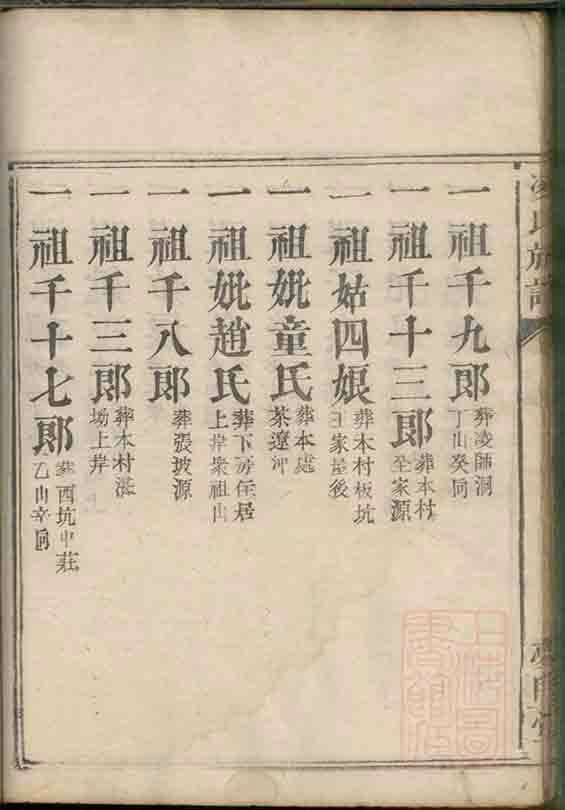 一祖千九郎 葬凌師洞 丁山癸向
一祖千十三郎 葬本村 全家源
一祖姑四娘 葬本村板坑 王家屋後
一祖妣童氏 葬本處 茶遼沖
一祖妣趙氏 葬下房住居 上岸衆祖山
一祖千八郎 葬張坡源
一祖千三郎 葬本村 场上岸
一祖千十七郎 葬西坑中莊 乙山辛向
上海圖書館藏